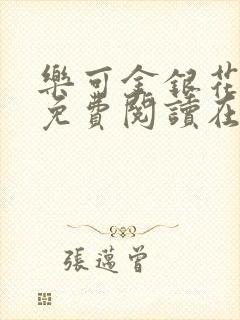 樂可金銀花
免費閱讀在
張邁曾